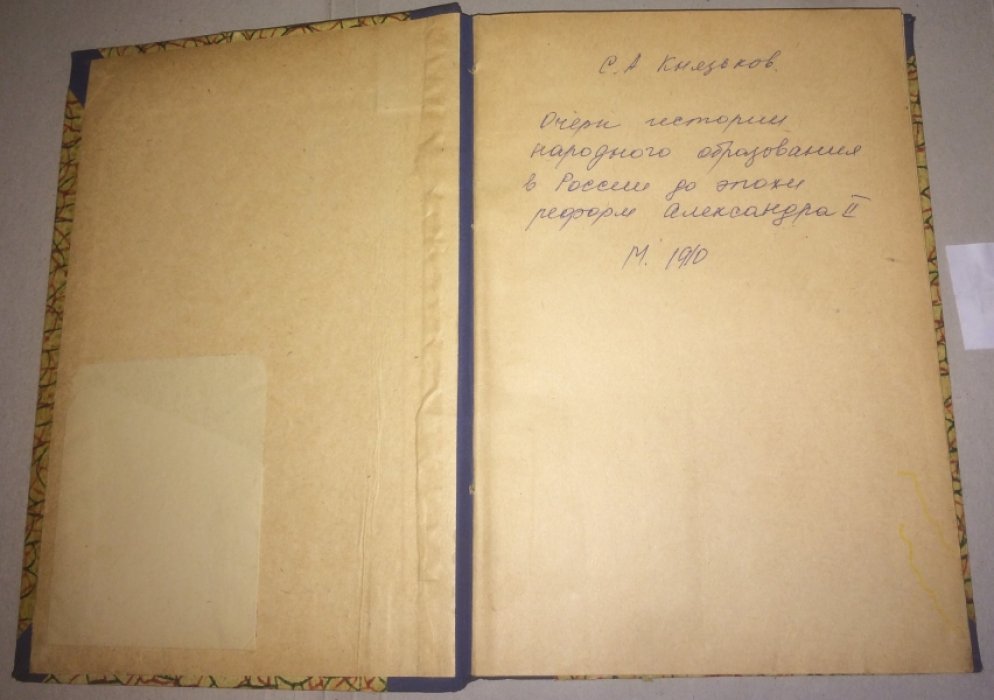 С.А Князьков.
Очерк истории
народного образования
в России до эпохи
реформ Александра II
М. 1910